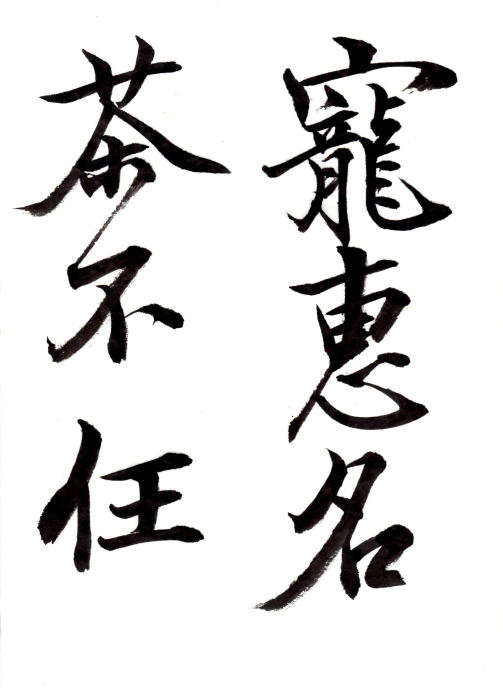 寵惠名
茶不任